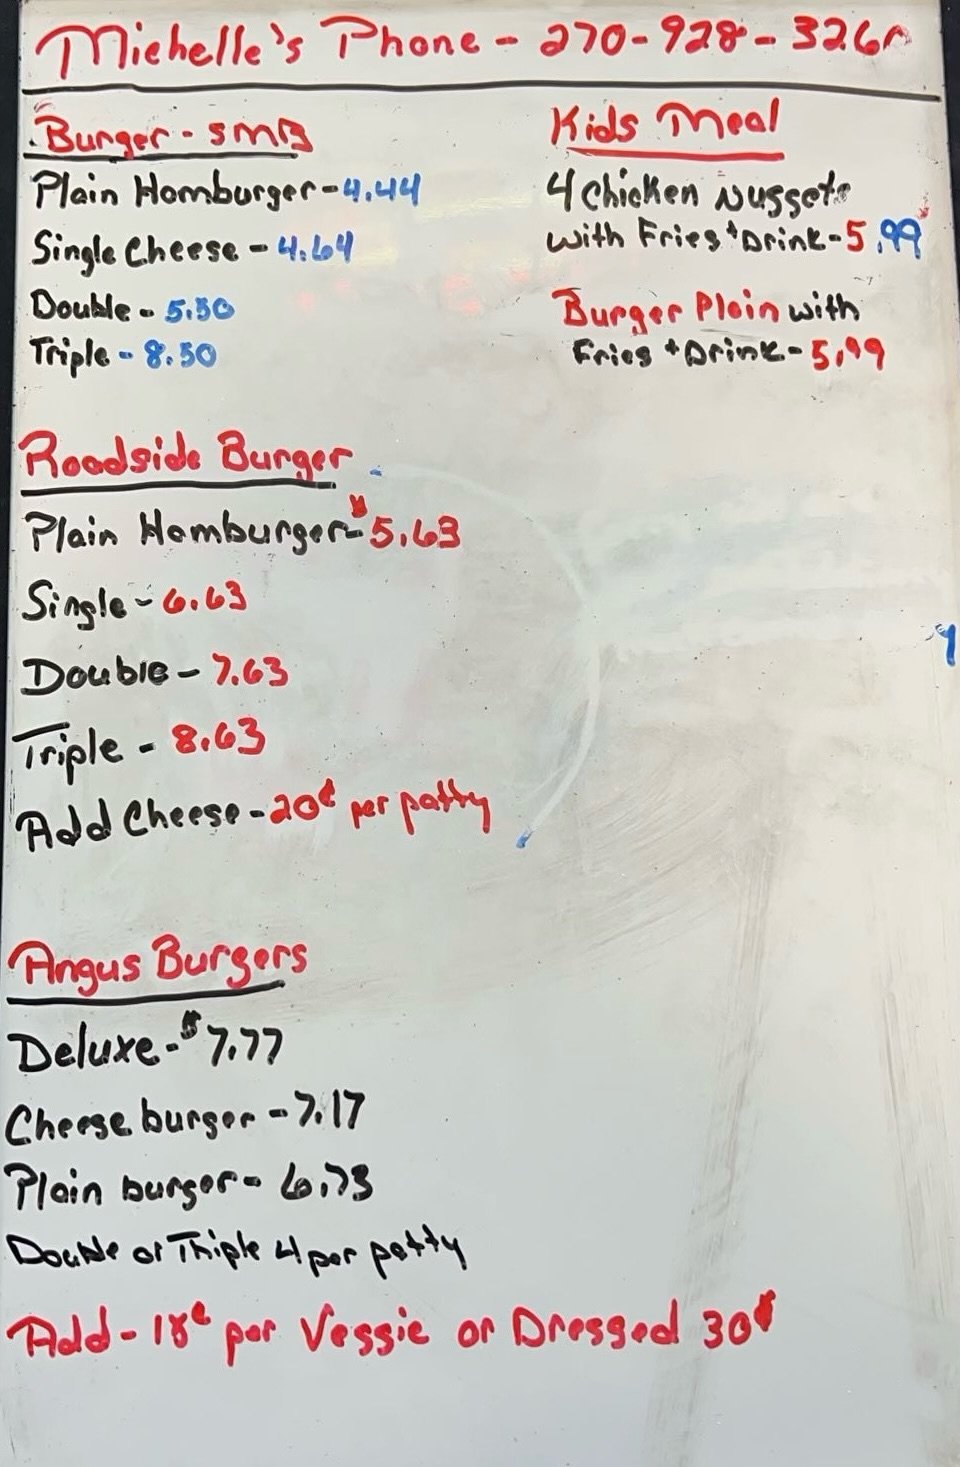 Michelle's Phone - 270-928-326
Burger - SMB
Plain Hamburger - 4.44
Single Cheese - 4.64
Double - 5.50
Triple - 8.50
Kids Meal
4 Chicken Nuggets
with Fries + Drink - 5.99
Burger Plain with
Fries + Drink - 5.99
Roadside Burger
Plain Hamburger - $5.63
Single - 6.63
Double - 7.63
Triple - 8.63
Add Cheese - 20¢ per patty
Angus Burgers
Deluxe - $7.77
Cheese burger - 7.17
Plain burger - 6.73
Double or Triple 4 per patty
Add - 18¢ per Veggie or Dressed 30¢